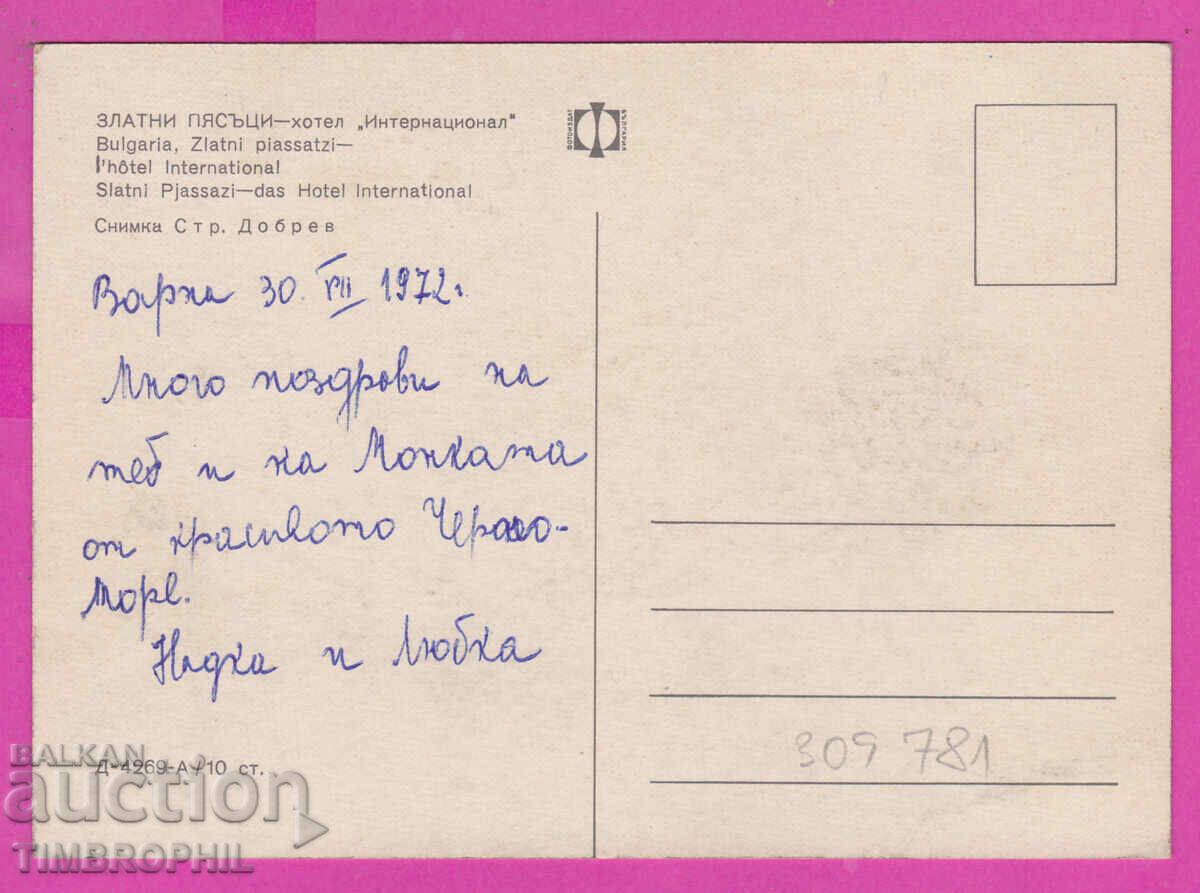 ЗЛАТНИ ПЯСЪЦИ—хотел „Интернационал"
Bulgaria, Zlatni piassatzi—
l'hôtel International
Slatni Pjassazi—das Hotel International
Снимка Стр. Добрев
ФОТОИЗДАТ
БЪЛГАРИЯ
Варна 30. VII 1972г.
Много поздрави на
теб и на Монката
от красивото Черно-
море.
Надка и Любка
Д-4269-А/10 ст.
309 781
BALKAN
auction
TIMBROPHIL